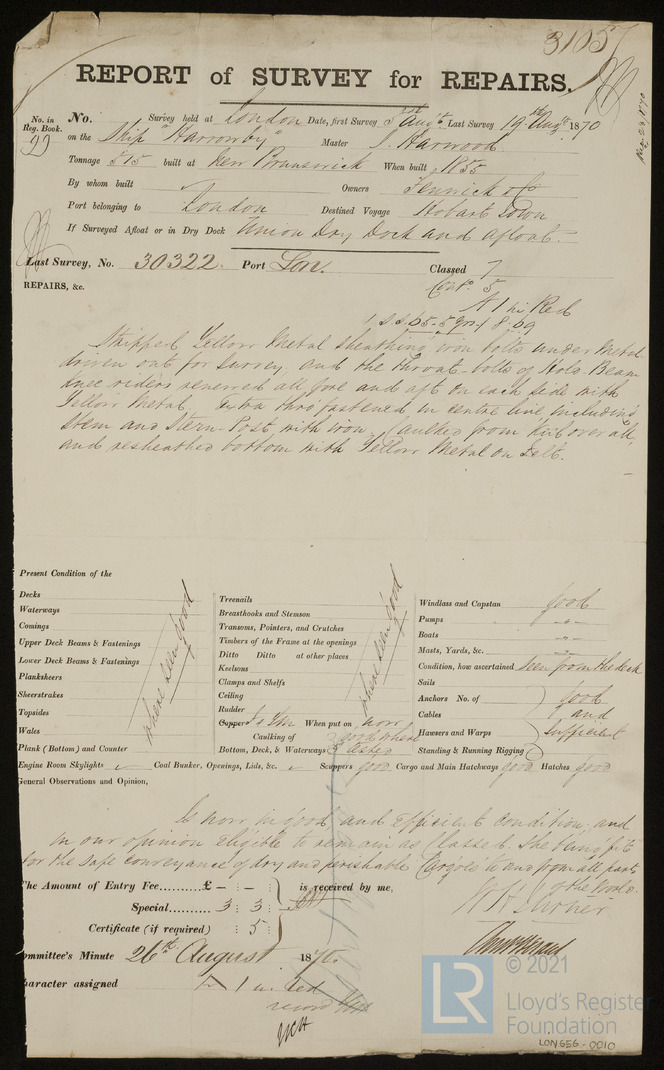 31057
REPORT of SURVEY for REPAIRS.
No. in Reg. Book. 92
No. Survey held at London Date, first Survey 5th Augt. Last Survey 19th Augt. 1870
on the Ship "Harrowby" Master J. Harwood
Tonnage 515 built at New Brunswick When built 1855
By whom built Owners Fenwick & Co
Port belonging to London Destined Voyage Hobart Town
If Surveyed Afloat or in Dry Dock Union Dry Dock and afloat.
Last Survey, No. 30322. Port Lon. Classed 7
Cont. 5
REPAIRS, &c.
A 1 in Red
S.S. 65-5 yrs 8.69
Stripped Yellow Metal sheathing, iron bolts under Metal
driven out for survey, and the throat-bolts of Hold Beam
knee riders renewed all fore and aft on each side with
Yellow Metal. Extra thro' fastened in centre line, including
Stem and Stern-Post with iron. Caulked from keel over all,
and resheathed bottom with Yellow Metal on Felt.
Present Condition of the
Decks
Waterways
Comings
Upper Deck Beams & Fastenings
Lower Deck Beams & Fastenings
Planksheers
Sheerstrakes
Topsides
Wales
Plank (Bottom) and Counter
where seen good
Treenails
Breasthooks and Stemson
Transoms, Pointers, and Crutches
Timbers of the Frame at the openings
Ditto Ditto at other places
Keelsons
Clamps and Shelfs
Ceiling
Rudder
where seen good
Copper When put on now
Caulking of
Bottom, Deck, & Waterways
good where tested
Windlass and Capstan good
Pumps -"-
Boats -"-
Masts, Yards, &c. -"-
Condition, how ascertained Seen from the deck
Sails
Anchors No. of
Cables
Hawsers and Warps
Standing & Running Rigging
good and sufficient
Engine Room Skylights Coal Bunker, Openings, Lids, &c. Scuppers good Cargo and Main Hatchways good Hatches good
General Observations and Opinion,
Is now in good and efficient condition, and
in our opinion eligible to remain as Classed. She being fit
for the safe conveyance of dry and perishable Cargoes to and from all parts
of the World.
The Amount of Entry Fee..........£ - : - :
Special.......... 3 : 3 :
Certificate (if required) : 5 :
is received by me,
Committee's Minute 26th August 1870.
Character assigned A 1 in Red
© 2021
LR
Lloyd's Register
Foundation
LON656-0010